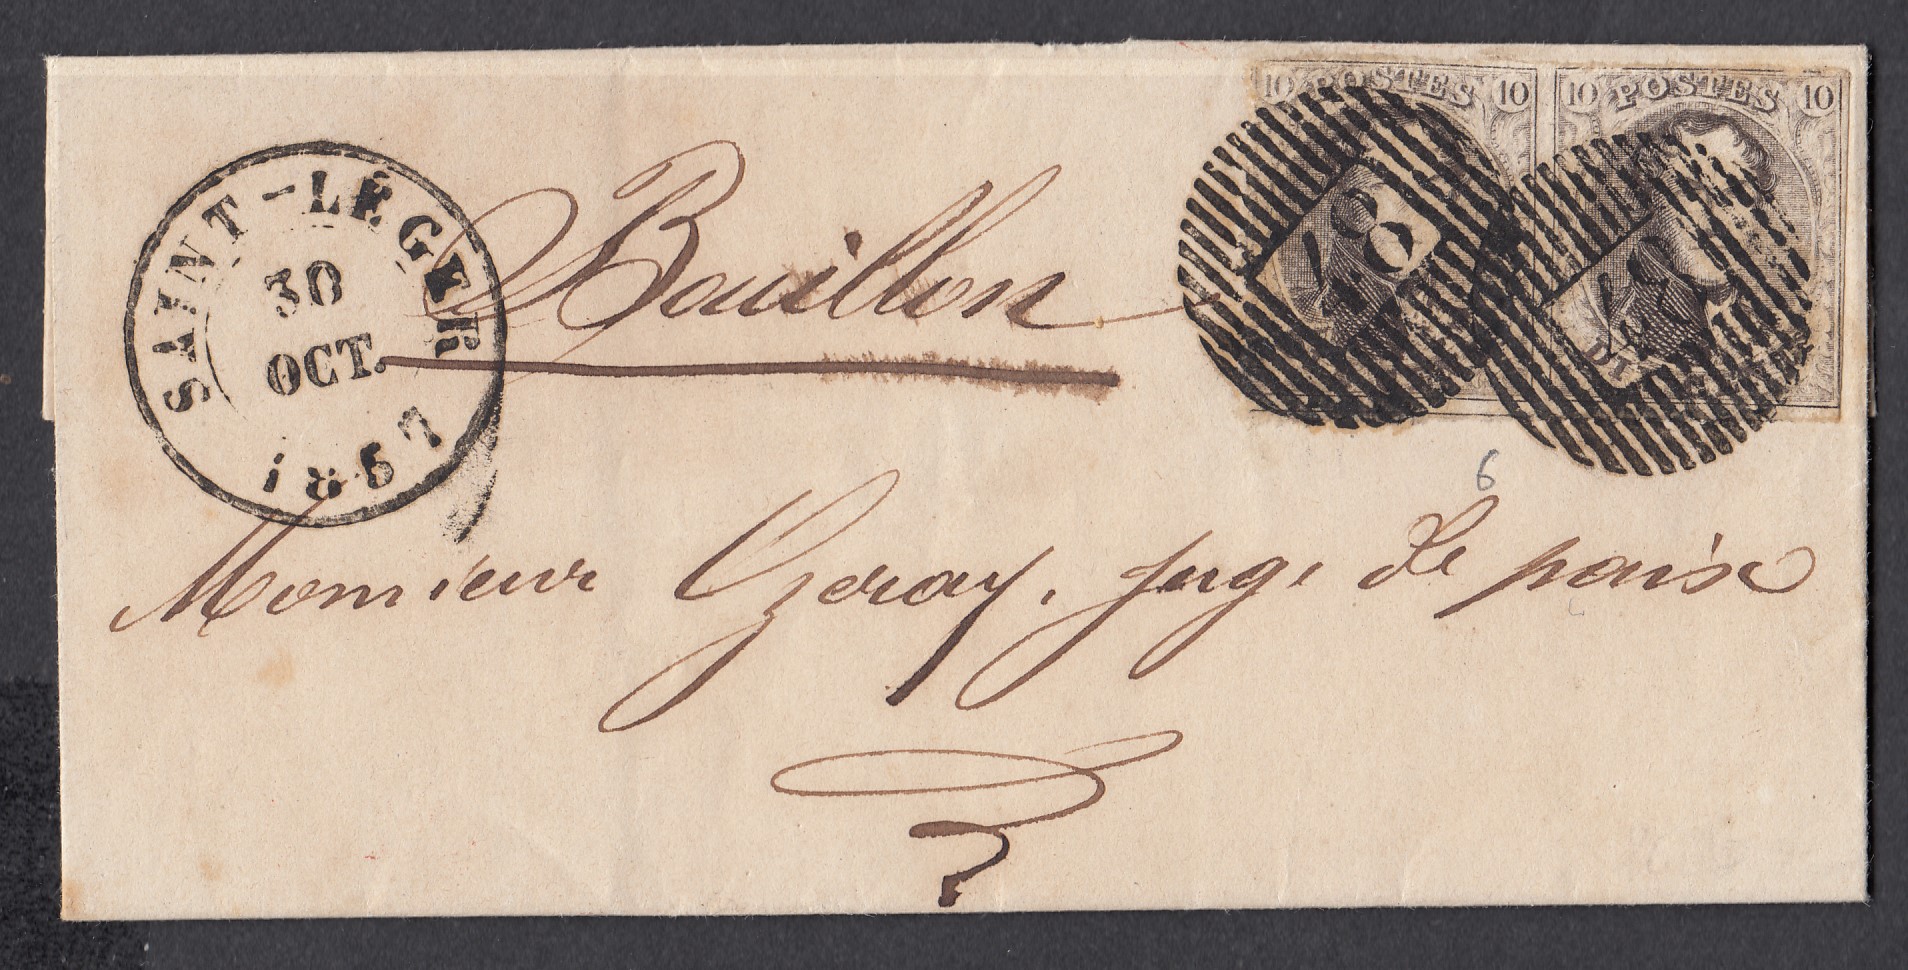 10 POSTES 10 10 POSTES 10
SAINT-LÉGER
30
OCT.
1857
Bouillon
6
Monsieur Ozeray, juge de paix